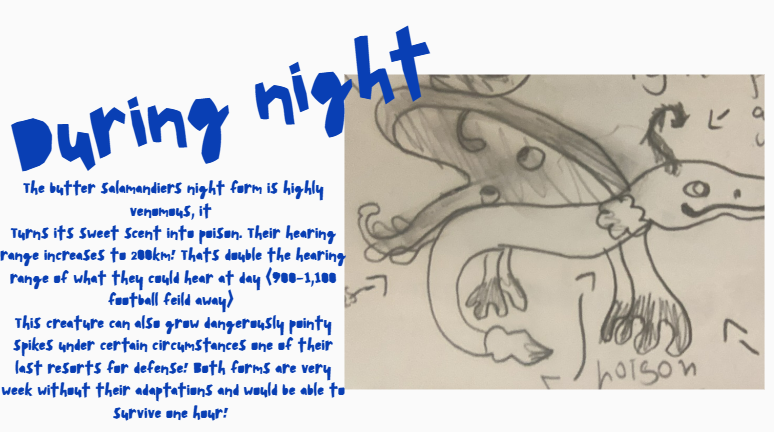 During night
The butter Salamandiers night form is highly
venomous, it
Turns its sweet scent into poison. Their hearing
range increases to 200km! Thats double the hearing
range of what they could hear at day (900-1,100
football feild away)
This creature can also grow dangerously pointy
spikes under certain circumstances one of their
last resorts for defense! Both forms are very
week without their adaptations and would be able to
survive one hour!
poison